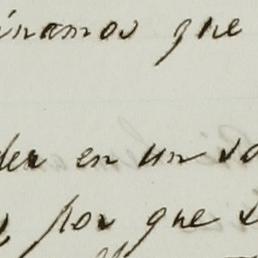 inamos que
der en un so
por que s